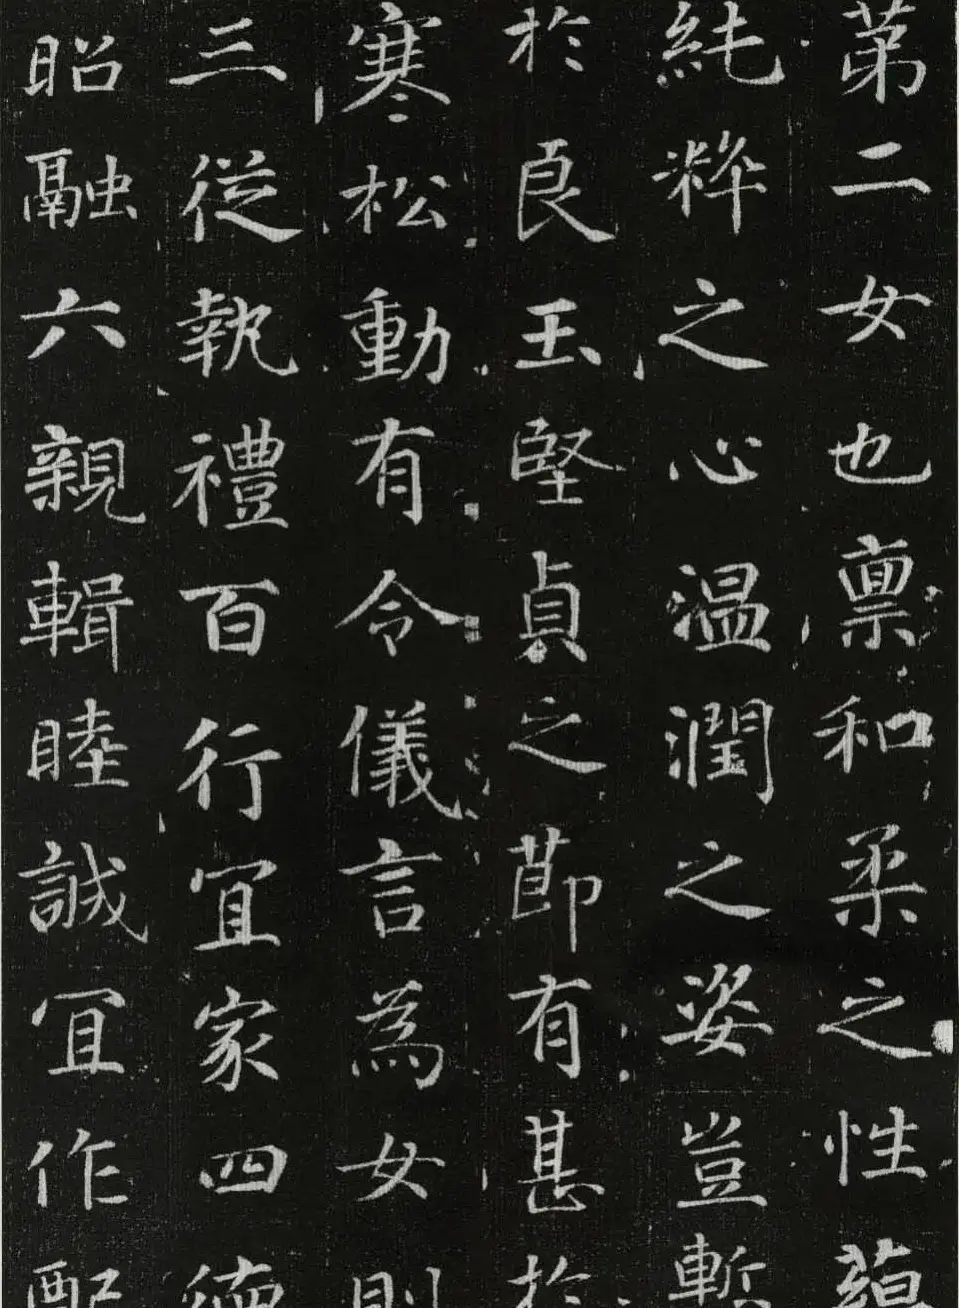 苐二女也禀和柔之性蕴
純粹之心温潤之姿豈慙
於良玉堅貞之莭有甚於
寒松動有令儀言為女則
三從執禮百行冝家四德
昭融六親輯睦誠冝作配